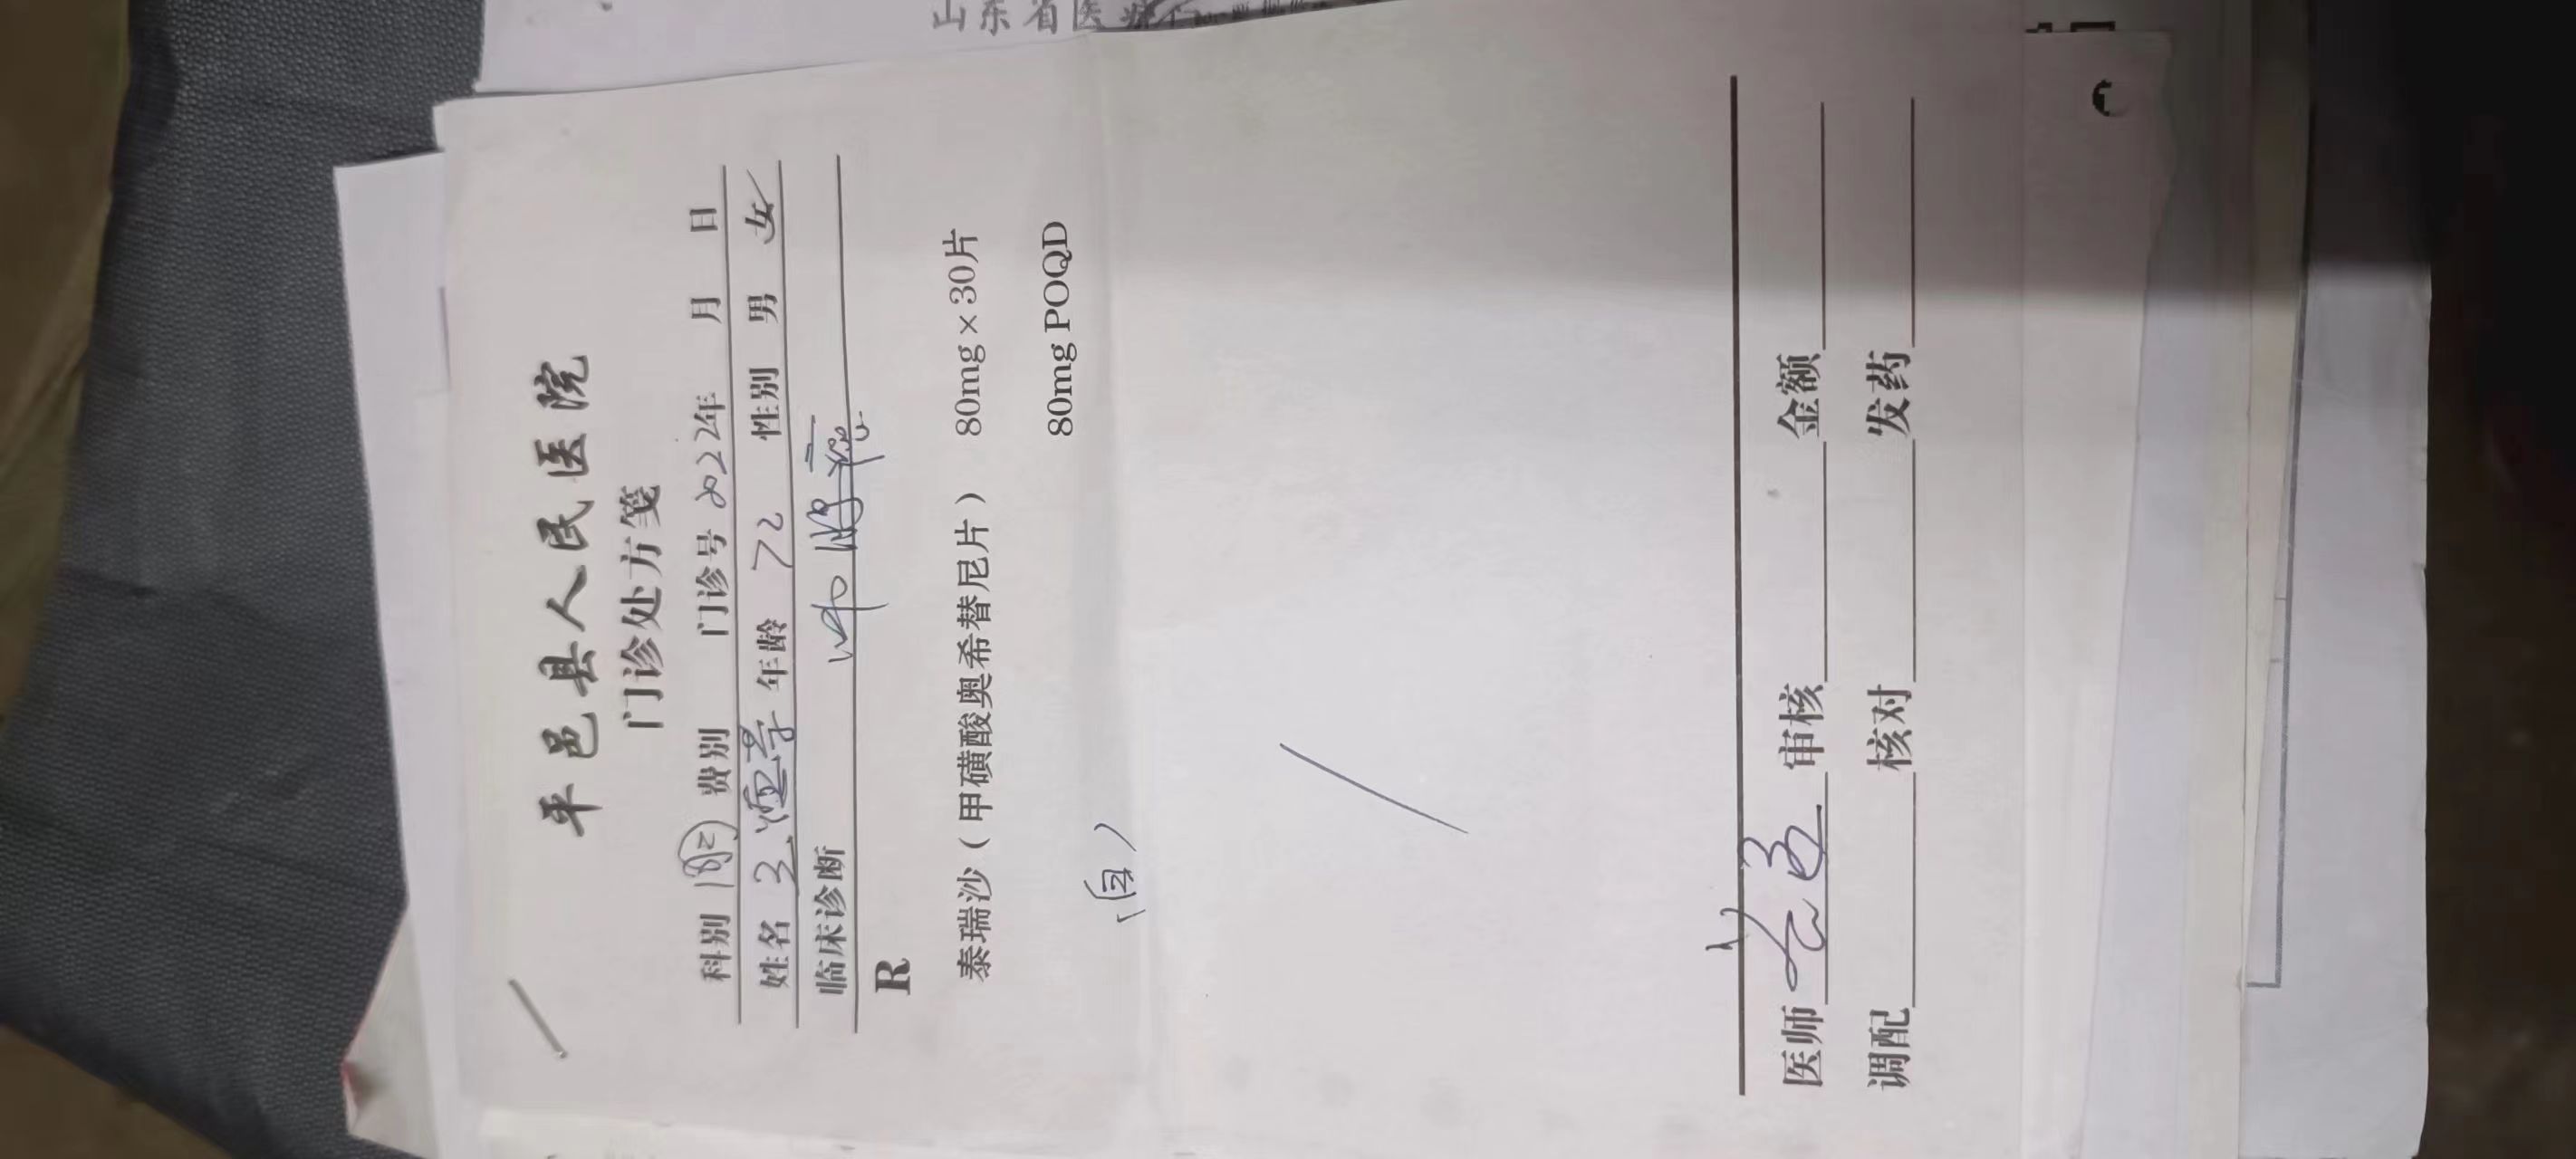 山东省医疗
平邑县人民医院
门诊处方笺
科别 费别 门诊号 2022年 月 日
姓名 年龄 72 性别 男 女✓
临床诊断
R
泰瑞沙（甲磺酸奥希替尼片） 80mg×30片
80mg POQD
（自）
医师 审核 金额
调配 核对 发药